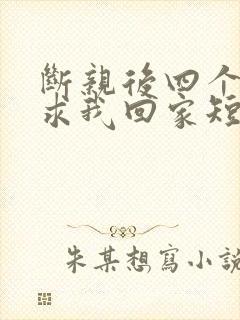 斷親後四个
求我回家短
朱某想寫小說